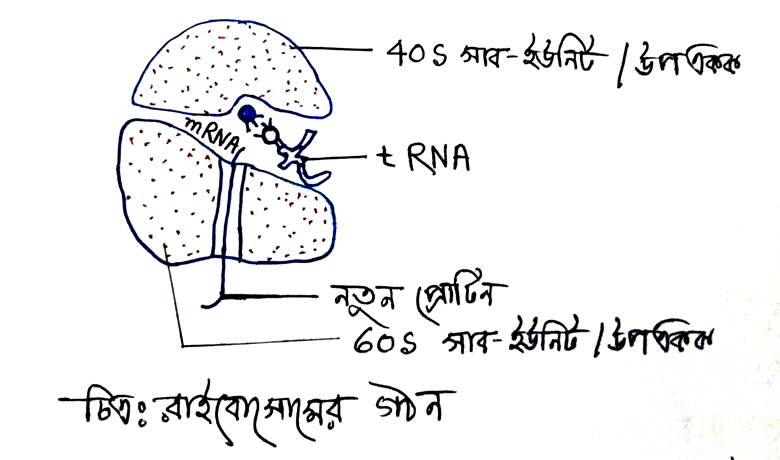 40S সাব-ইউনিট / উপএকক
mRNA
t RNA
নতুন প্রোটিন
60S সাব-ইউনিট / উপএকক
চিত্র: রাইবোসোমের গঠন